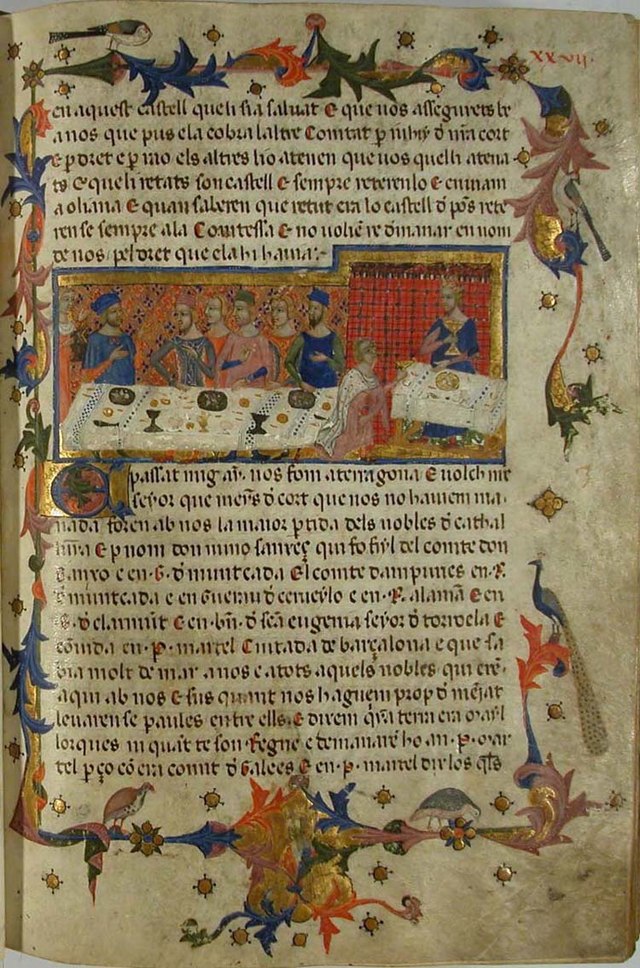 xxvij.
en aquest castell que li sia saluat E que uos assegurets be
a nos que pus ela cobra laltre Comtat p
E p dret e p rao els altres lio atenen que uos quelli atena
ts E que li retats son castell E sempre reteren lo E en
a oliana E quan saberen que retut era lo castell d pos rete
ren se sempre ala Comtessa E no uolie re dmanar en nom
de nos pel dret que ela hi hauia:
E passat mig an nos fom a terragona E uolch nre
seyor que meys d cort que nos no hauiem ma
nada foren ab nos la maior ptida dels nobles d cathal
E p nom don nuno sanxeç qui fo fiyl del comte don
sanxo e en .G. d muntcada El comte dampuries en .R.
d muntcada e en Guerau d cerueylo e en .R. alama E en
.G. d claramut E en bn. d sca eugenia seyor d torroela E
en .P. martel Ciutada de barçalona e que sa
bia molt de mar a nos e a tots aquels nobles qui eren
aqui ab nos E sus quant nos haguem prop d
leuaren se paules entre ells. E dixem qna terra era mayl
lorques ni quant te son regne e demanaren ho an .P. mar
tel p ço co era comit d Galees E en .P. martel dix los